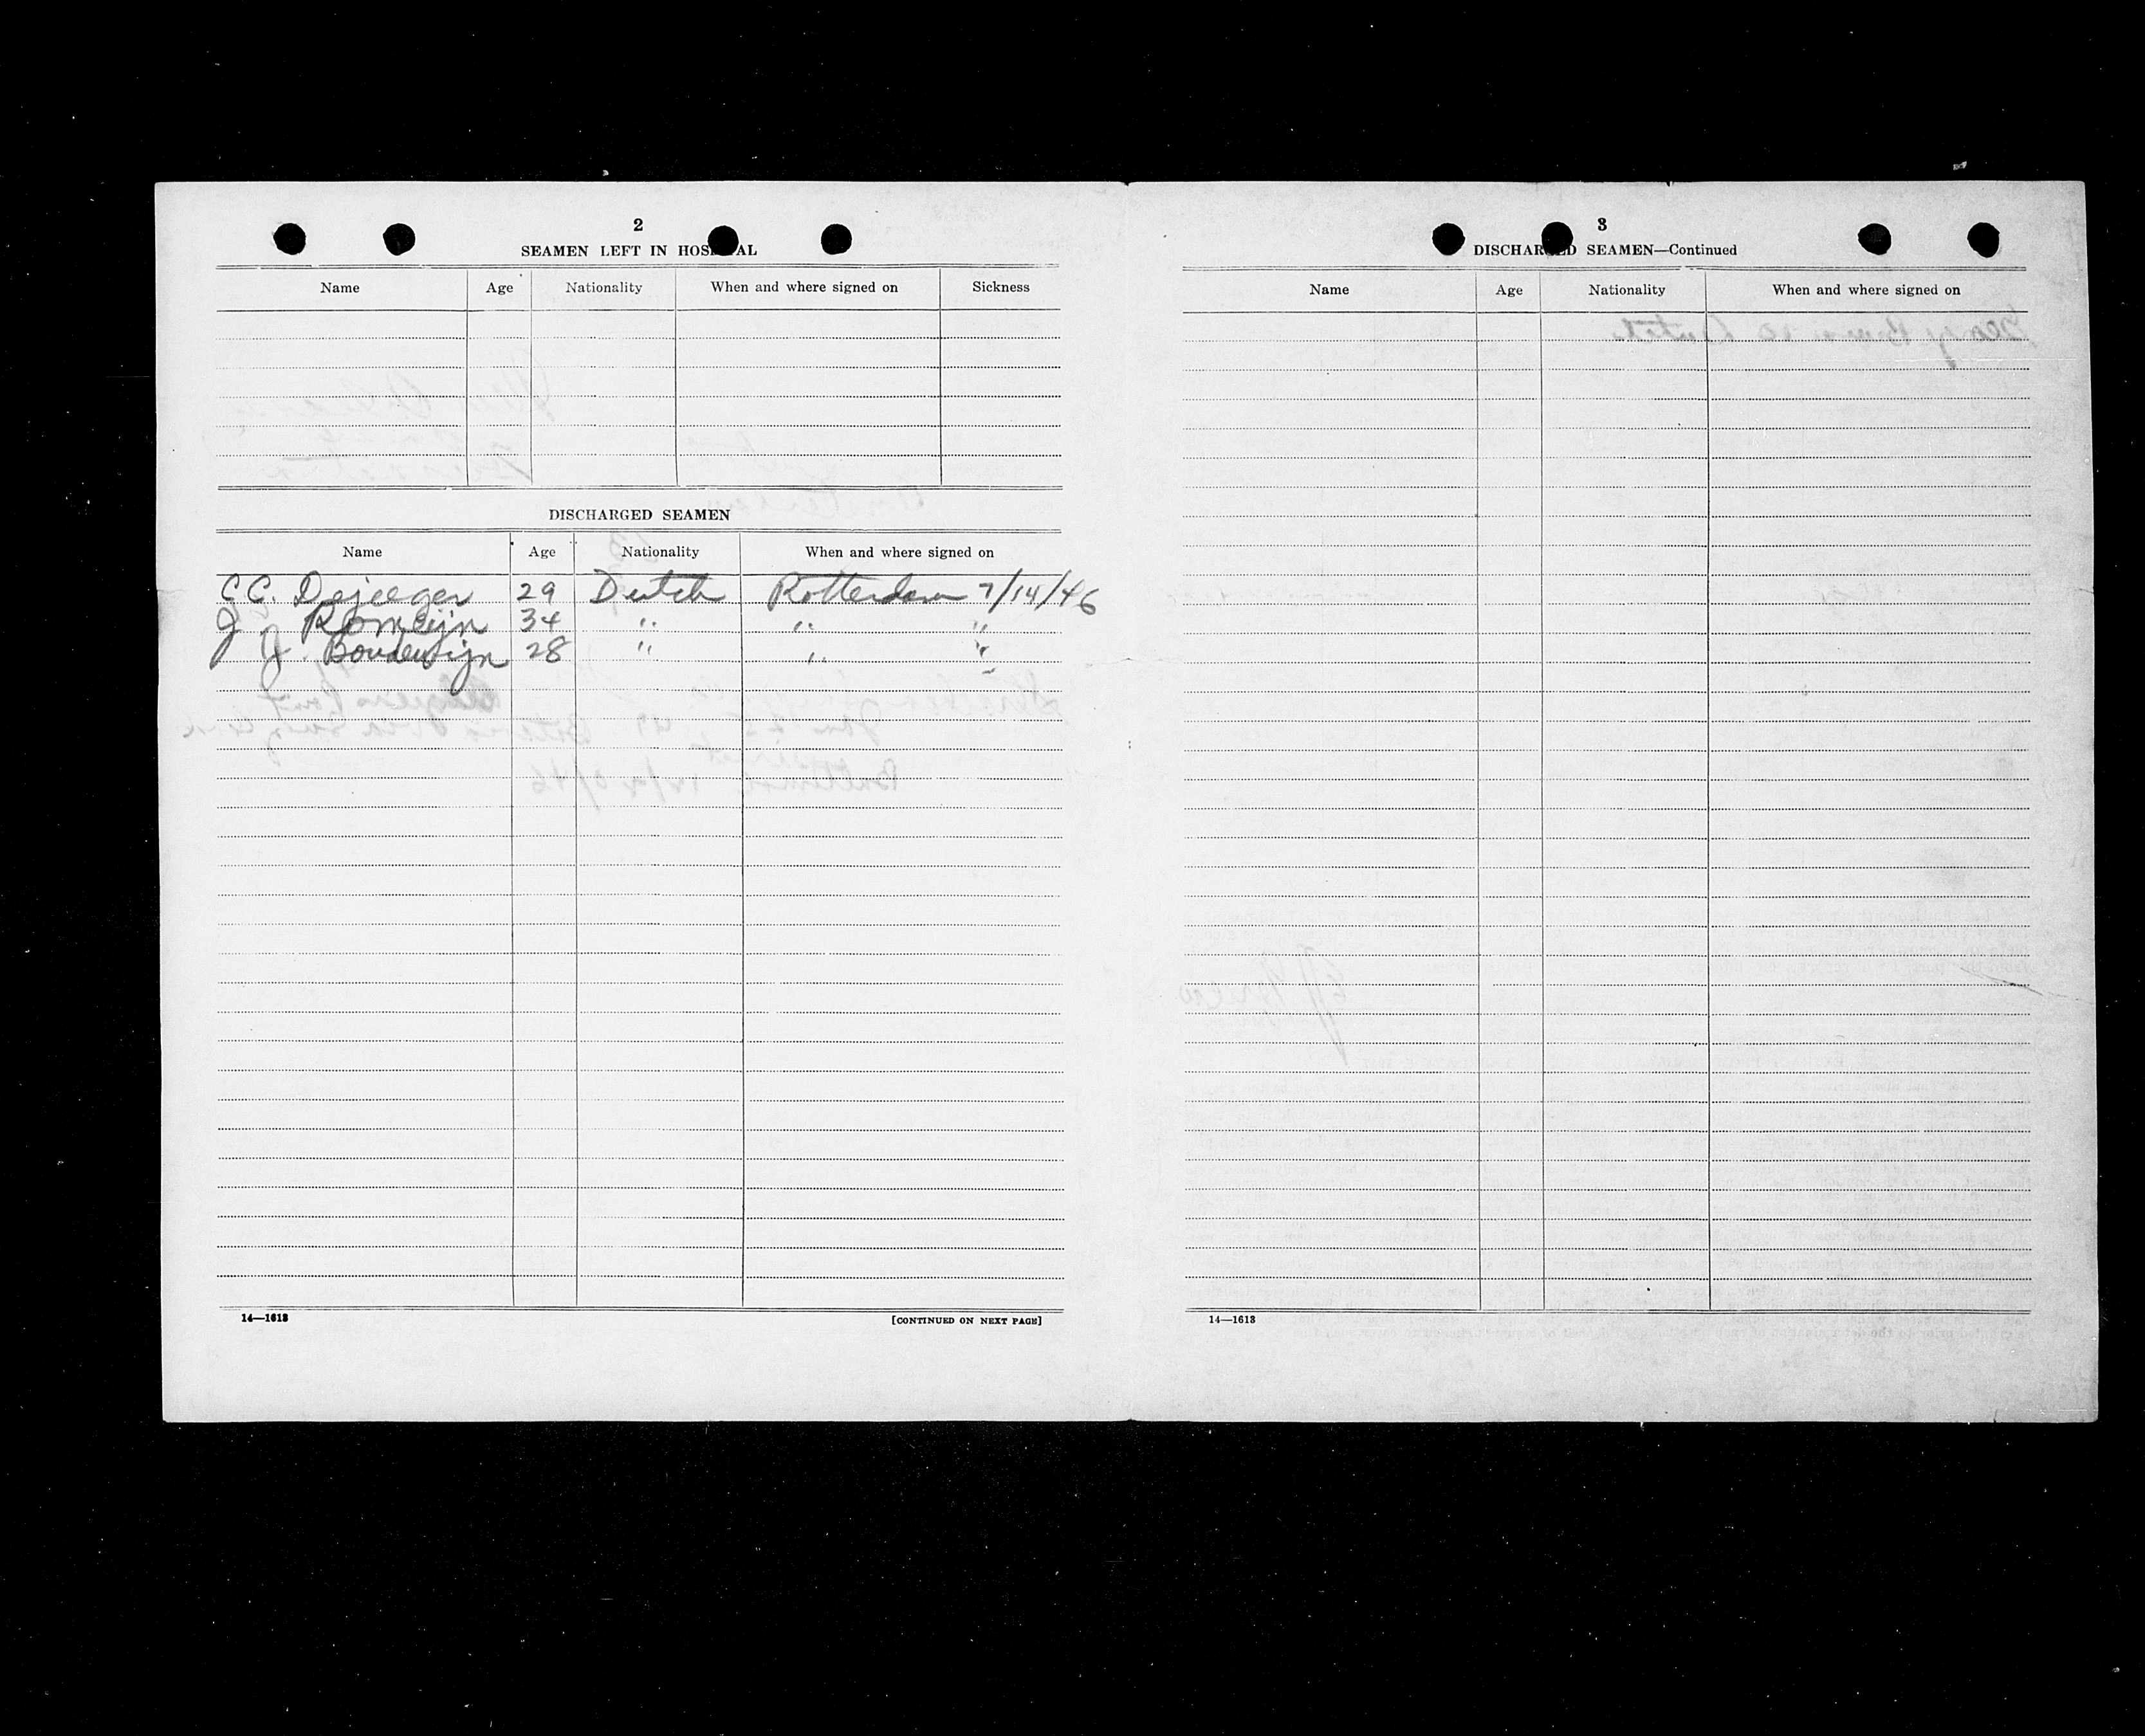 2
SEAMEN LEFT IN HOS AL
Name Age Nationality When and where signed on Sickness
DISCHARGED SEAMEN
Name Age Nationality When and where signed on
C C. Dejeeger 29 Dutch Rotterdam 7/14/46
J. Romeijn 34 " " "
J. Boudewijn 28 " " "
14—1613 [CONTINUED ON NEXT PAGE]
3
DISCHAR D SEAMEN—Continued
Name Age Nationality When and where signed on
14—1613